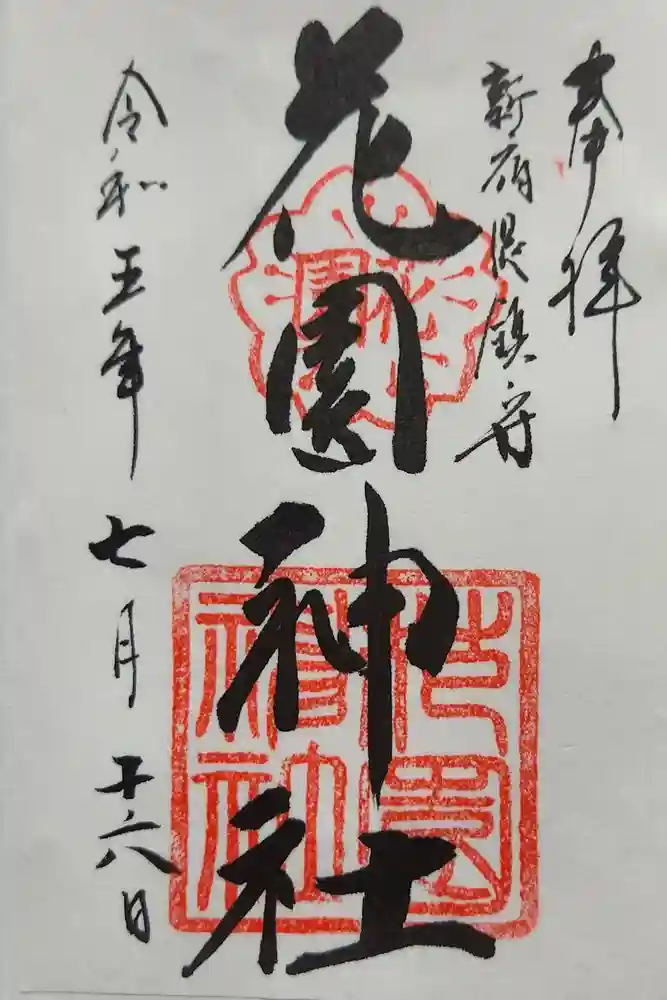 奉拝
新宿總鎮守
花園神社
令和五年七月十六日
花園神社